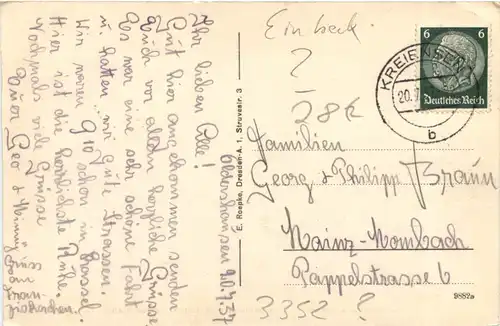 Einbeck.
?
28k
6 6
Deutsches Reich
KREIENSEN
20.7
b
Oldershausen 20.7.37
Ihr lieben Alle!
Gut hier angekommen senden
Euch vor allem herzliche Grüsse
Es war eine sehr schöne Fahrt
u. hatten wir gute Strassen.
Wir waren 9 10 schon in Kassel
Hier ist die herrlichste Ruhe.
Nochmals viele Grüsse
Euer Geo & Minny
Gruss
von
Fran-
ziskachen.
E. Roepke, Dresden-A. 1, Struvestr. 3
Familien
Georg & Philipp Braun
Mainz-Mombach
Pappelstrasse 6
9882a
3352 ?